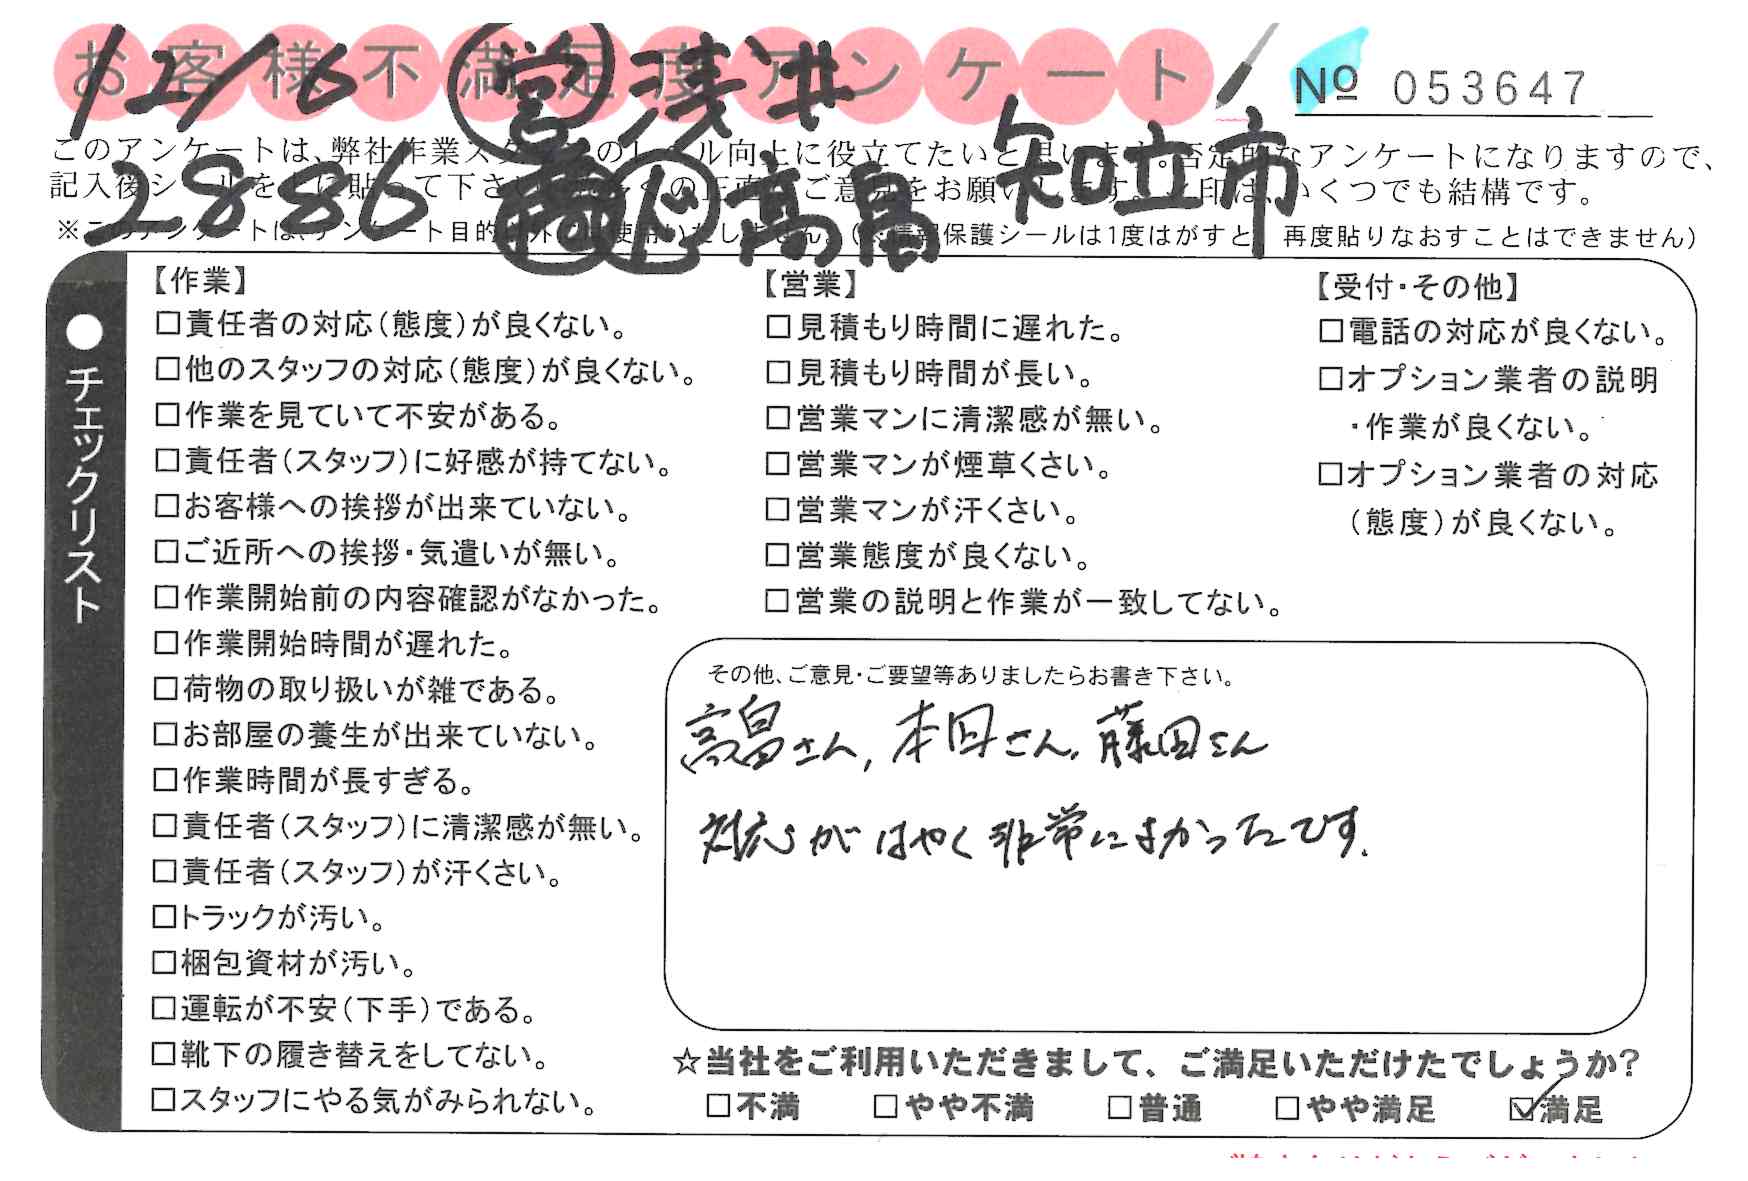 お客様不満足度アンケート
No 053647
12/6 営 浅井
2886 ド 高畠 知立市
このアンケートは、弊社作業スタッフのレベル向上に役立てたいと思います。否定的なアンケートになりますので、
記入後シールを上に貼って下さい。
ご意見をお願いします。
いくつでも結構です。
※このアンケートは、アンケート目的以外には使用いたしません。(※情報保護シールは1度はがすと、再度貼りなおすことはできません)
●チェックリスト
【作業】
□責任者の対応(態度)が良くない。
□他のスタッフの対応(態度)が良くない。
□作業を見ていて不安がある。
□責任者(スタッフ)に好感が持てない。
□お客様への挨拶が出来ていない。
□ご近所への挨拶・気遣いが無い。
□作業開始前の内容確認がなかった。
□作業開始時間が遅れた。
□荷物の取り扱いが雑である。
□お部屋の養生が出来ていない。
□作業時間が長すぎる。
□責任者(スタッフ)に清潔感が無い。
□責任者(スタッフ)が汗くさい。
□トラックが汚い。
□梱包資材が汚い。
□運転が不安(下手)である。
□靴下の履き替えをしてない。
□スタッフにやる気がみられない。
【営業】
□見積もり時間に遅れた。
□見積もり時間が長い。
□営業マンに清潔感が無い。
□営業マンが煙草くさい。
□営業マンが汗くさい。
□営業態度が良くない。
□営業の説明と作業が一致してない。
【受付・その他】
□電話の対応が良くない。
□オプション業者の説明
・作業が良くない。
□オプション業者の対応
(態度)が良くない。
その他、ご意見・ご要望等ありましたらお書き下さい。
高畠さん, 本田さん, 藤田さん
対応がはやく非常によかったです.
☆当社をご利用いただきまして、ご満足いただけたでしょうか?
□不満 □やや不満 □普通 □やや満足 ☑満足